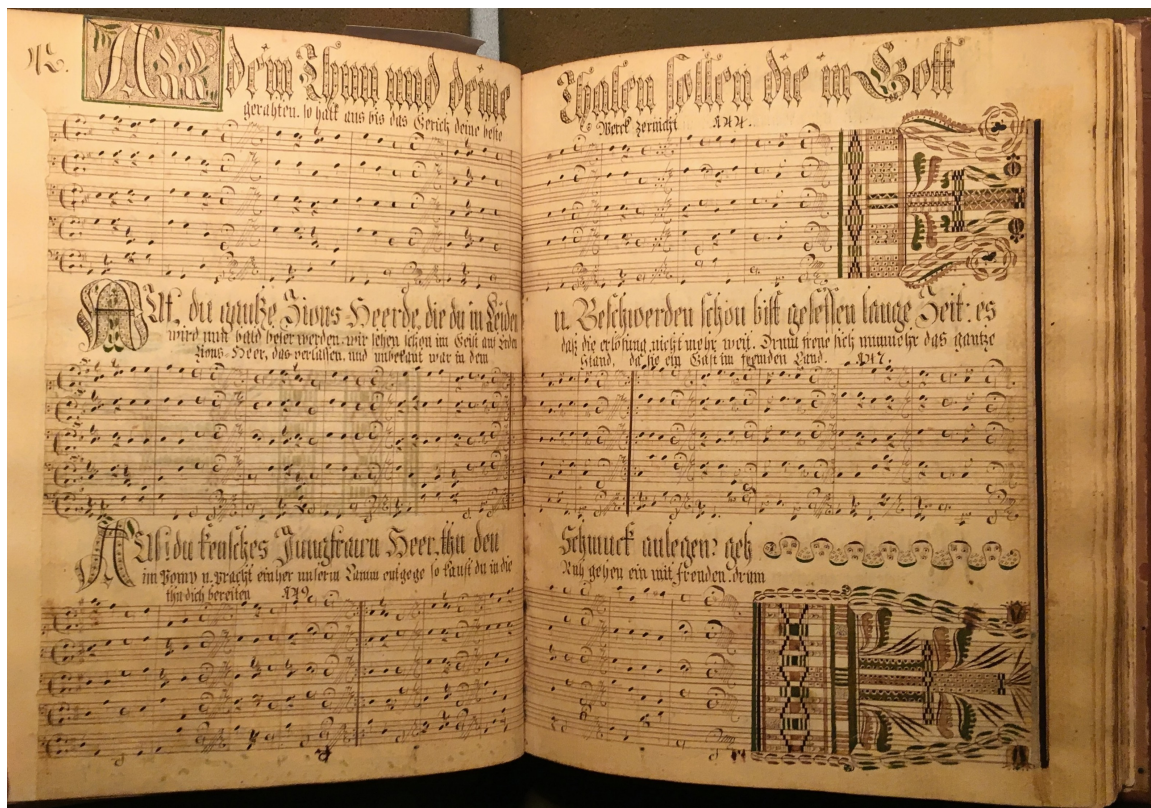 ALL dein Thun und deine Thaten sollen dir in Gott
gerahten. so halt aus bis das Gericht deine beste Werck zernicht 144.
AUf, du gantze Zions Heerde, die du in Leiden u. Beschwerden schon bist gesessen lange Zeit: es
wird nun bald beser werden. wir sehen schon im Geist auf Erden daß die erlösung nicht mehr weit. Drum freue sich nunmehr das gantze
Zions-Heer, das verlassen, und unbekant war in dem Stand, da sie ein Gast im fremden Land. 147.
AUf du keusches Jungfrauen Heer, thu den Schmuck anlegen: geh
im Pomp u. Pracht einher unserm Lamm entgege so kanst du in die Ruh gehen ein mit freuden. drum
thu dich bereiten 149.